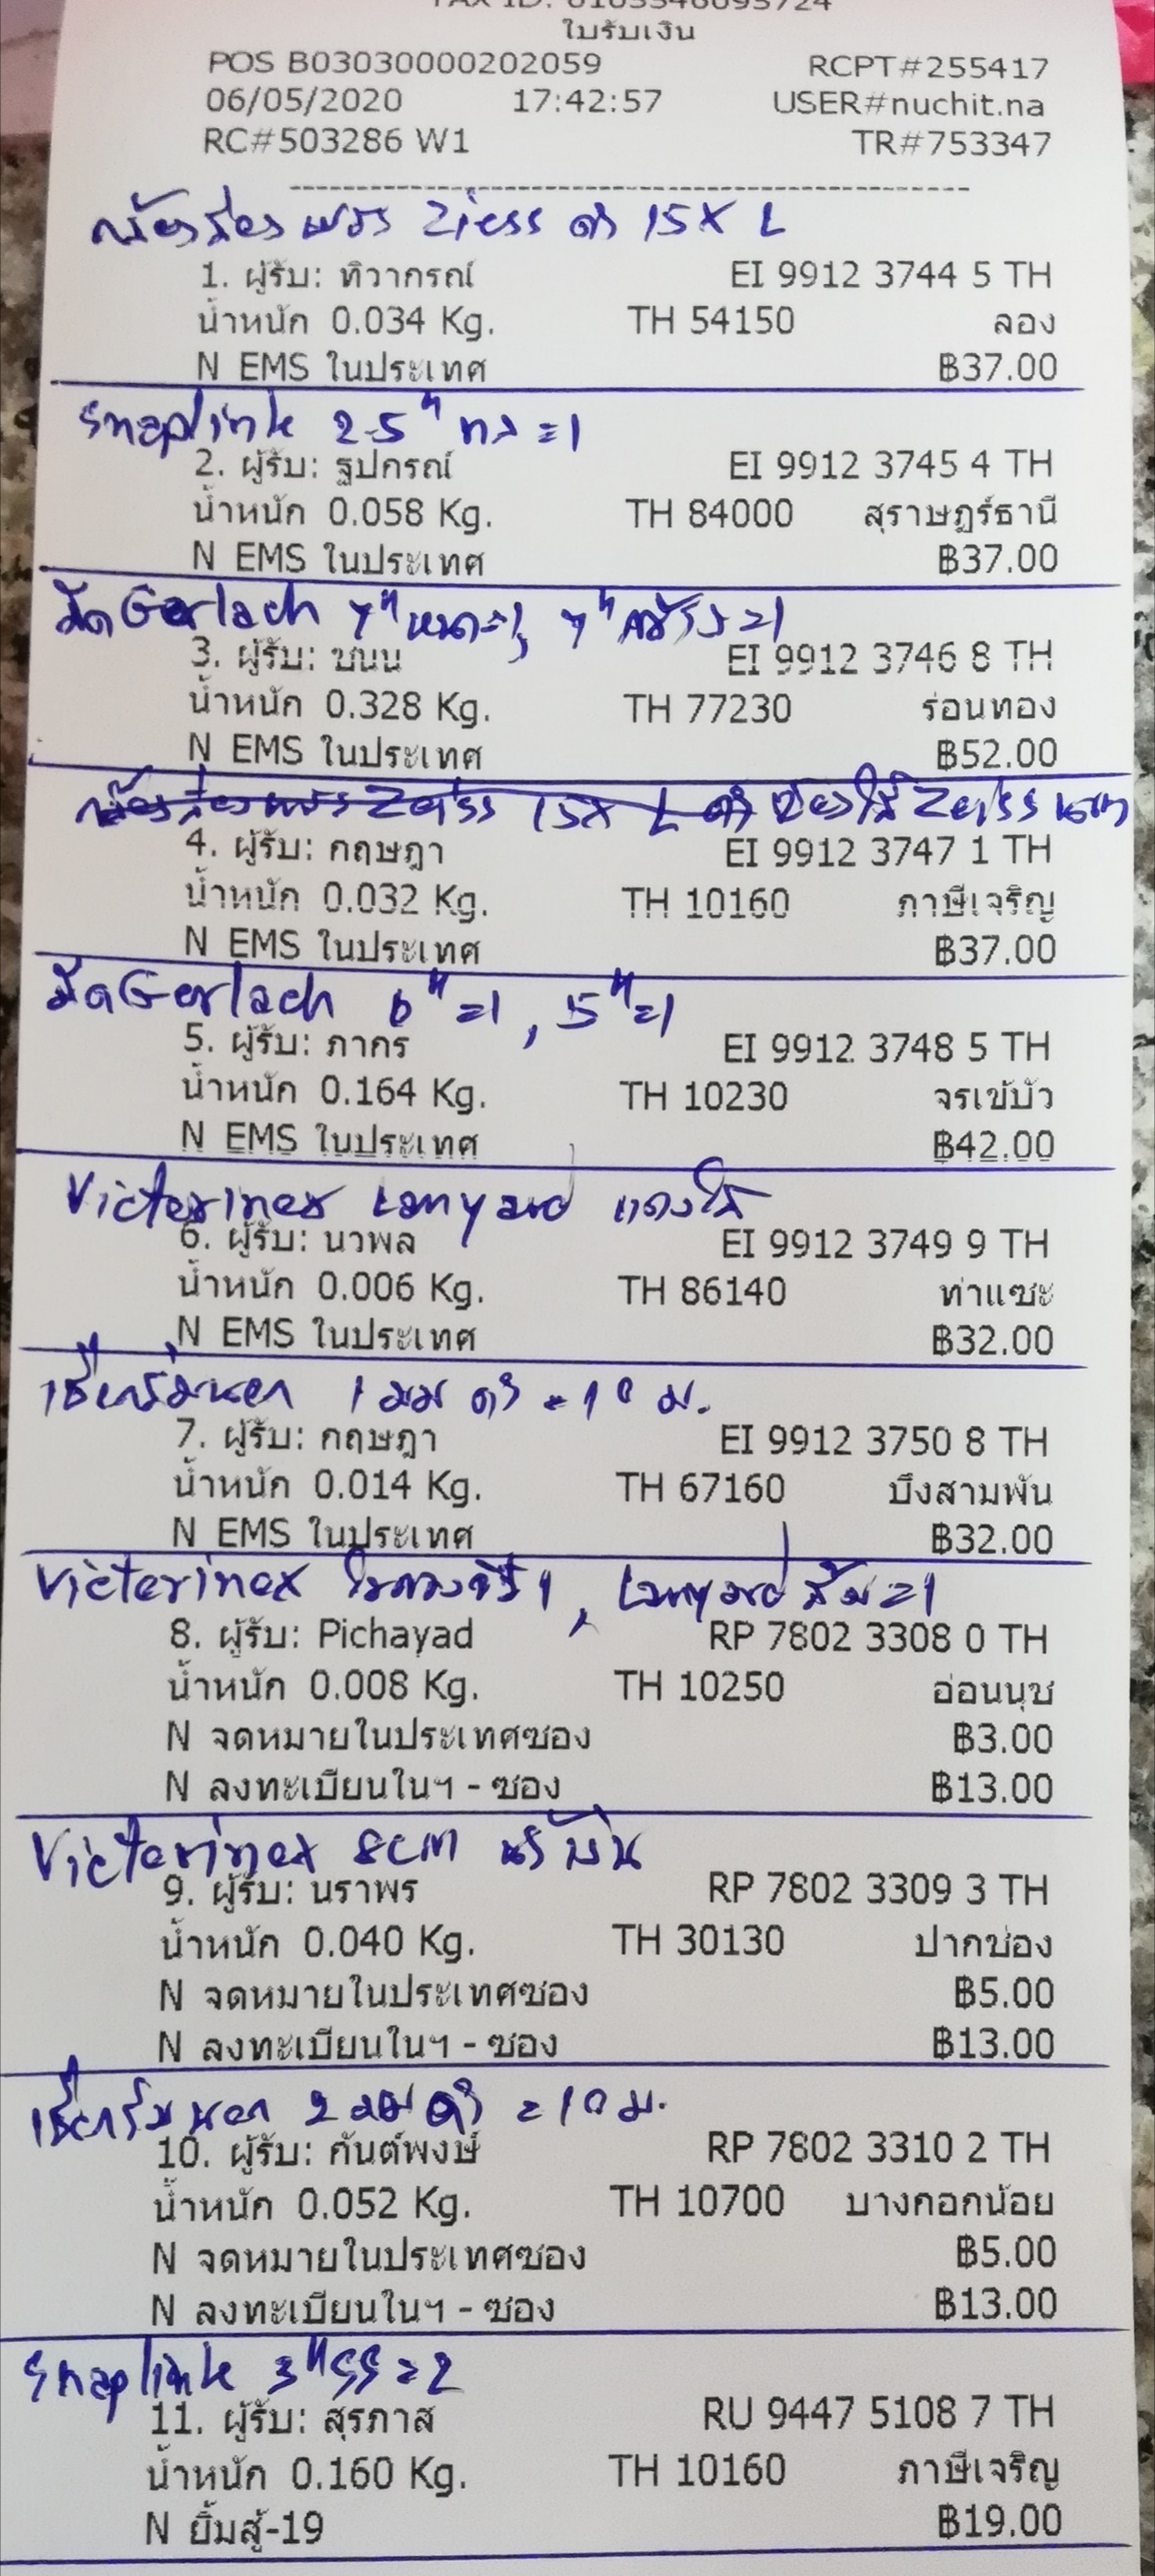 ใบรับเงิน
POS B03030000202059 RCPT#255417
06/05/2020 17:42:57 USER#nuchit.na
RC#503286 W1 TR#753347
กล้องส่องพระ Ziess ดำ 15X L
1. ผู้รับ: ทิวากรณ์ EI 9912 3744 5 TH
น้ำหนัก 0.034 Kg. TH 54150 ลอง
N EMS ในประเทศ ฿37.00
Snaplink 2.5" =1
2. ผู้รับ: ฐปกรณ์ EI 9912 3745 4 TH
น้ำหนัก 0.058 Kg. TH 84000 สุราษฎร์ธานี
N EMS ในประเทศ ฿37.00
มีด Gerlach 7" =1, 7" =1
3. ผู้รับ: ชนน EI 9912 3746 8 TH
น้ำหนัก 0.328 Kg. TH 77230 ร่อนทอง
N EMS ในประเทศ ฿52.00
กล้องส่องพระ Zeiss 15X L ดำ Zeiss
4. ผู้รับ: กฤษฎา EI 9912 3747 1 TH
น้ำหนัก 0.032 Kg. TH 10160 ภาษีเจริญ
N EMS ในประเทศ ฿37.00
มีด Gerlach 6"=1, 5"=1
5. ผู้รับ: ภากร EI 9912 3748 5 TH
น้ำหนัก 0.164 Kg. TH 10230 จรเข้บัว
N EMS ในประเทศ ฿42.00
Victerinox Lanyard แดงใส
6. ผู้รับ: นวพล EI 9912 3749 9 TH
น้ำหนัก 0.006 Kg. TH 86140 ท่าแซะ
N EMS ในประเทศ ฿32.00
เชือกร่มนอก 1 มม ดำ = 10 ม.
7. ผู้รับ: กฤษฎา EI 9912 3750 8 TH
น้ำหนัก 0.014 Kg. TH 67160 บึงสามพัน
N EMS ในประเทศ ฿32.00
Victerinox 1, Lanyard ส้ม=1
8. ผู้รับ: Pichayad RP 7802 3308 0 TH
น้ำหนัก 0.008 Kg. TH 10250 อ่อนนุช
N จดหมายในประเทศซอง ฿3.00
N ลงทะเบียนในฯ - ซอง ฿13.00
Victerinox 8cm
9. ผู้รับ: นราพร RP 7802 3309 3 TH
น้ำหนัก 0.040 Kg. TH 30130 ปากช่อง
N จดหมายในประเทศซอง ฿5.00
N ลงทะเบียนในฯ - ซอง ฿13.00
เชือกร่มนอก 2 มม ดำ = 10 ม.
10. ผู้รับ: กันต์พงษ์ RP 7802 3310 2 TH
น้ำหนัก 0.052 Kg. TH 10700 บางกอกน้อย
N จดหมายในประเทศซอง ฿5.00
N ลงทะเบียนในฯ - ซอง ฿13.00
Snaplink 3" SS=2
11. ผู้รับ: สุรภาส RU 9447 5108 7 TH
น้ำหนัก 0.160 Kg. TH 10160 ภาษีเจริญ
N ยิ้มสู้-19 ฿19.00